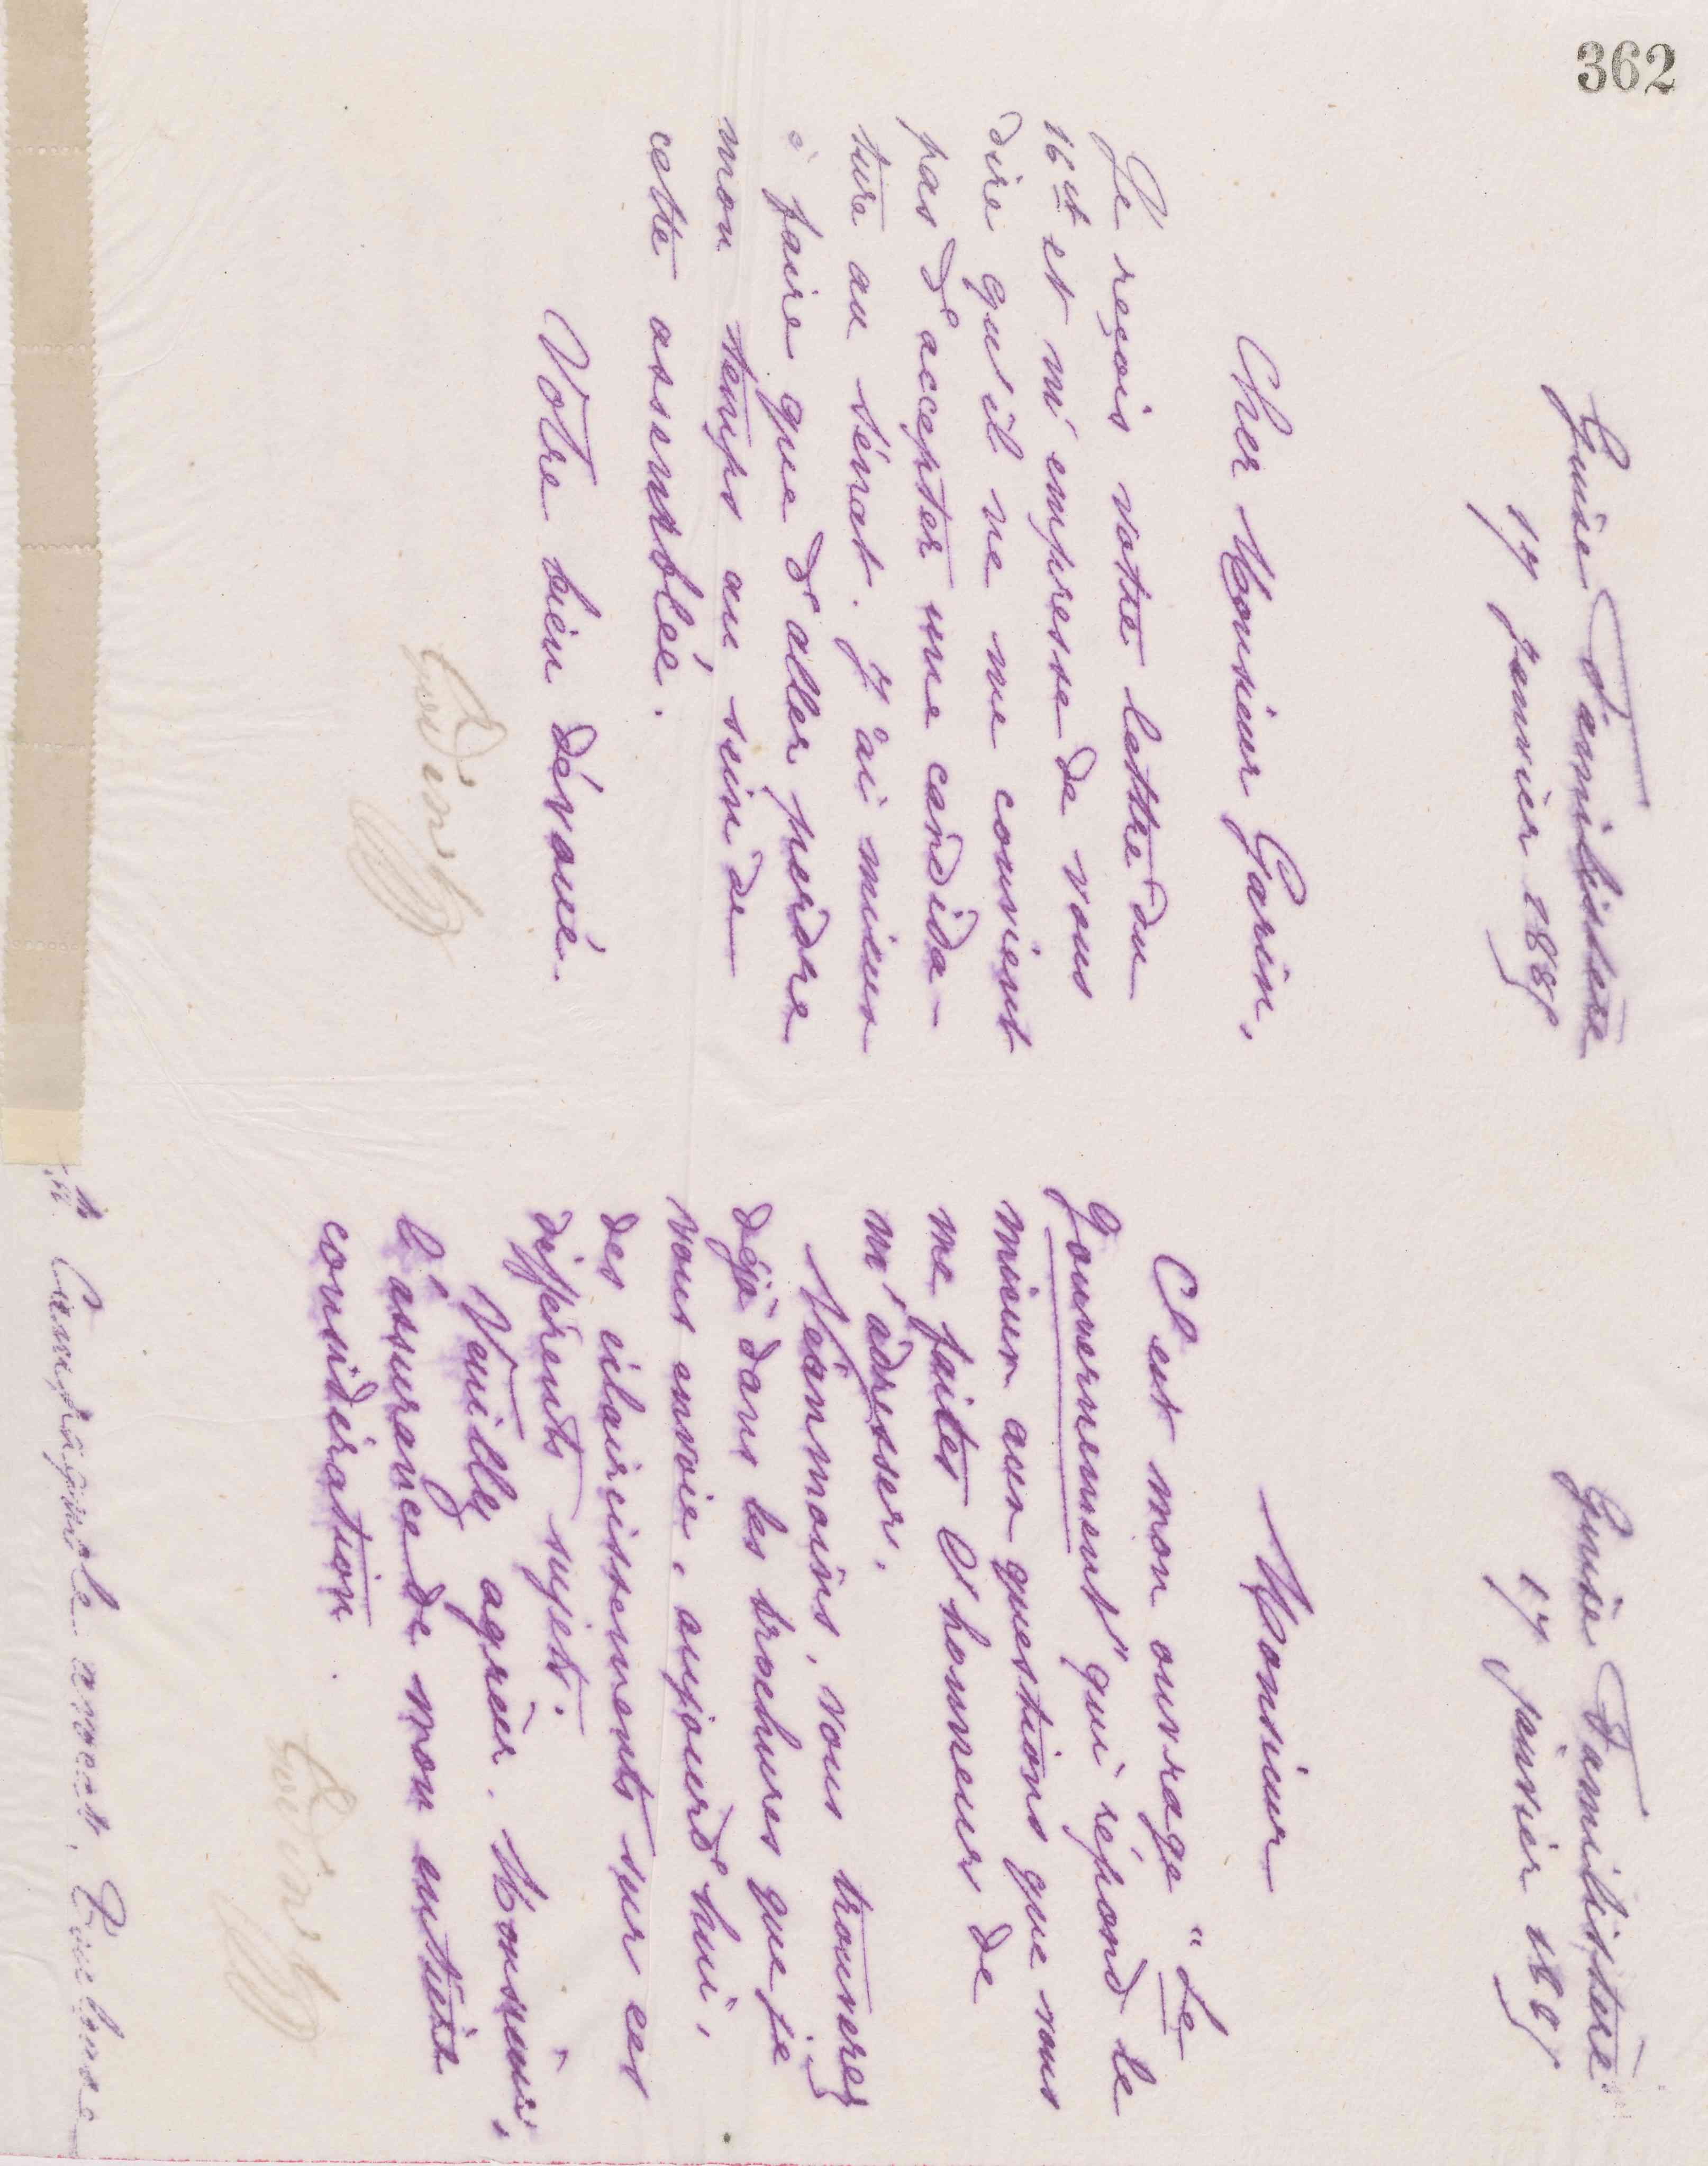 362
Guise Familistère
17 janvier 1885
Cher Monsieur Garin,
Je reçois votre lettre du
16 et et m'empresse de vous
dire qu'il ne me convient
pas d'accepter une candida-
ture au sénat. J'ai mieux
à faire que d'aller perdre
mon temps au sein de
cette assemblée.
Votre bien dévoué.
Godin
Guise Familistère
17 janvier 1885
Monsieur
C'est mon ouvrage "Le
Gouvernement" qui répond le
mieux aux questions que vous
me faites l'honneur de
m'adresser.
Néanmoins, vous trouverez
déjà dans les brochures que je
vous envoie, aujourd'hui,
des éclaircissements sur ces
différents sujets.
Veuillez agréer, Monsieur,
l'assurance de mon entière
considération.
Godin